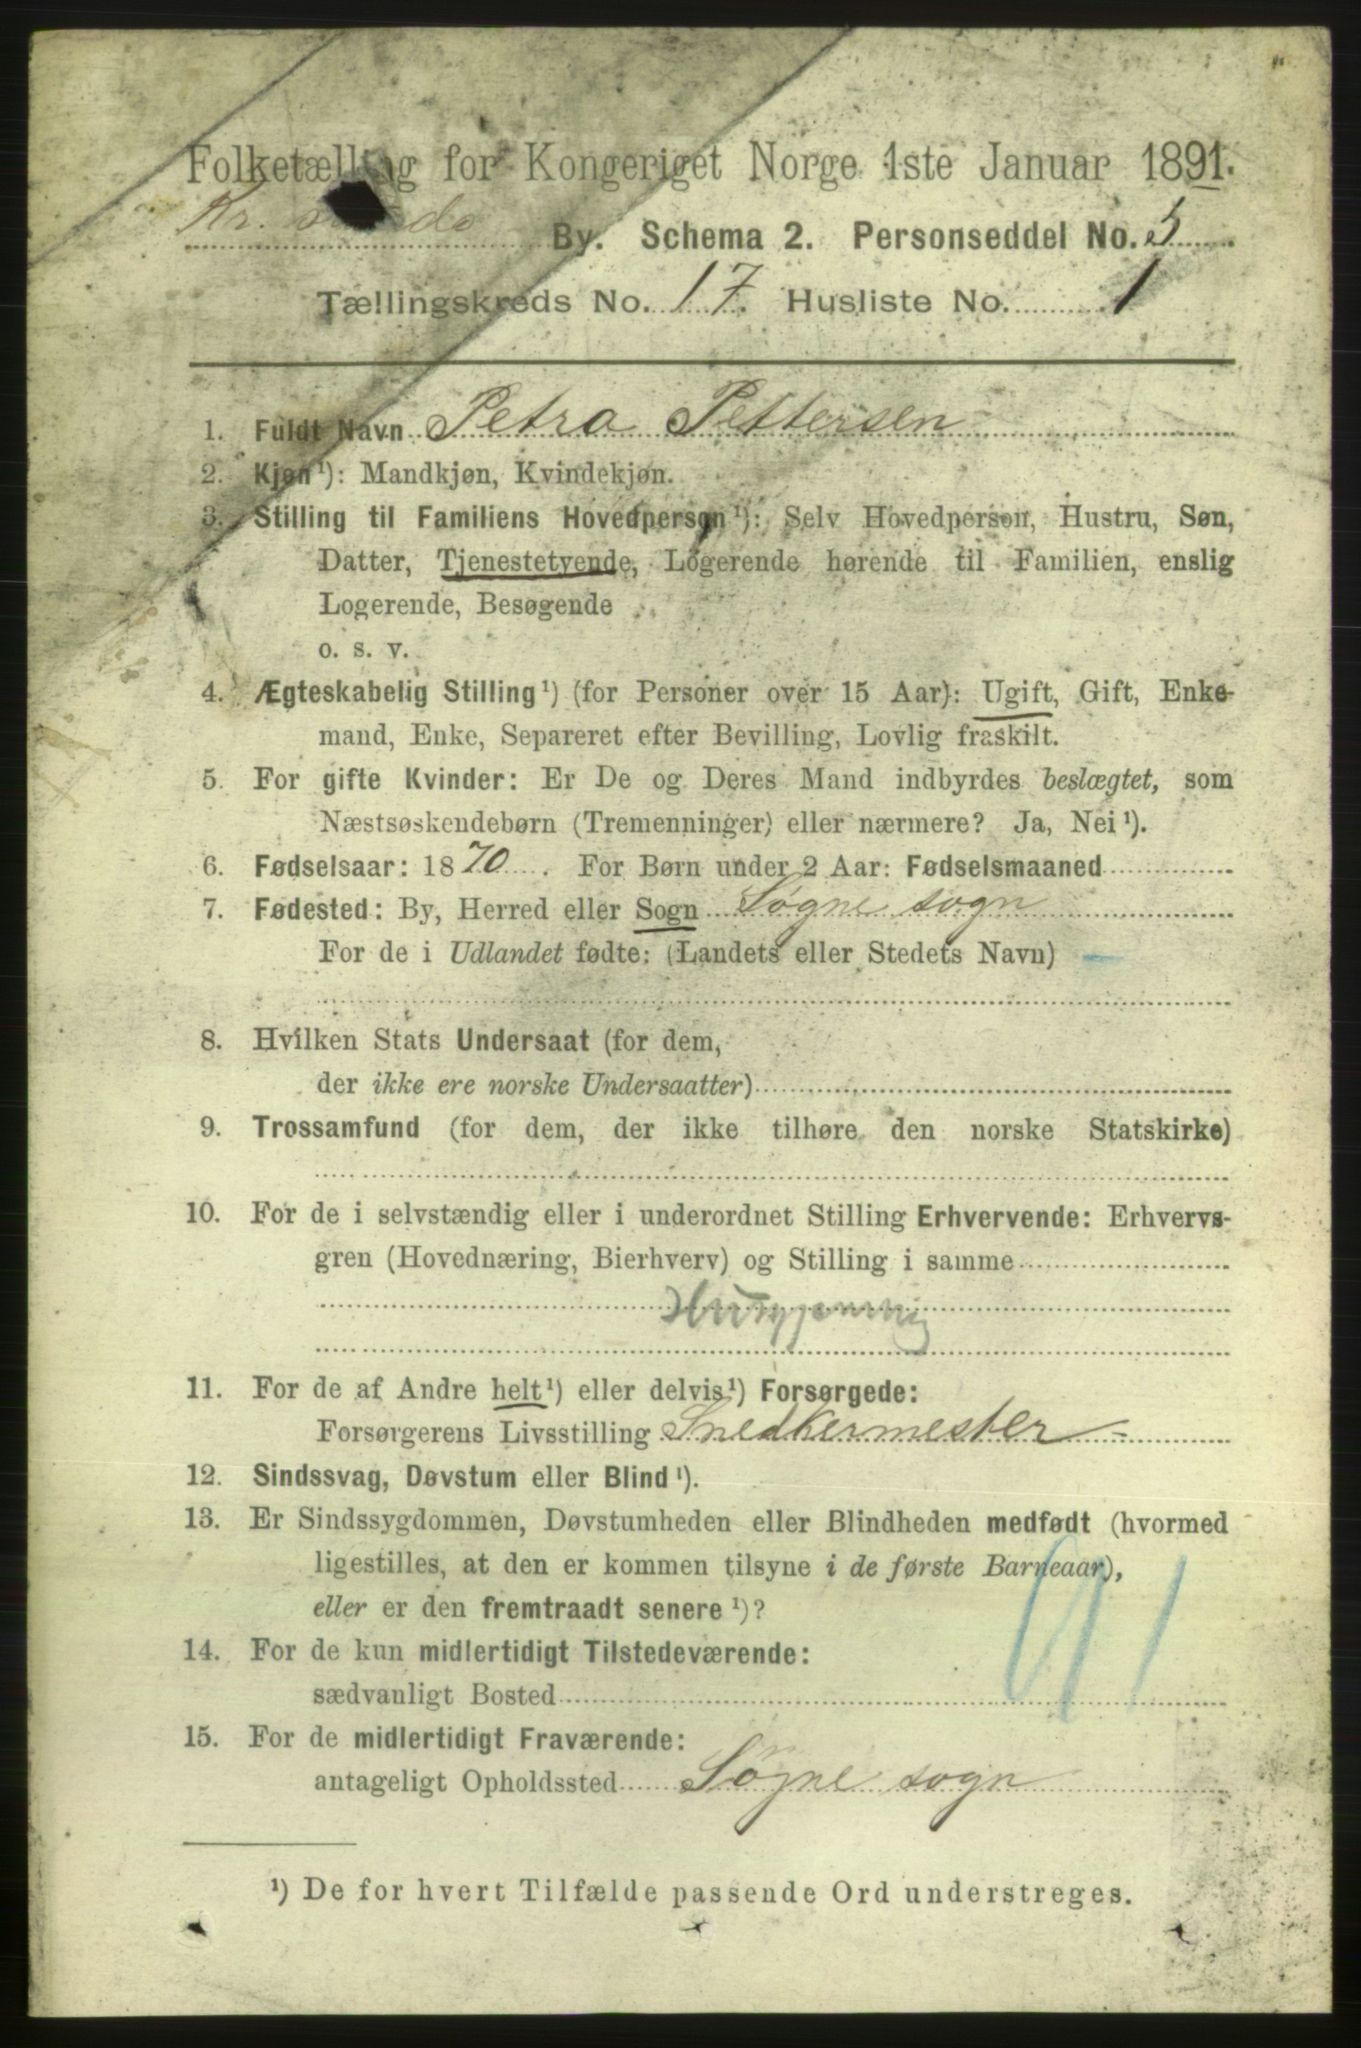 Folketælling for Kongeriget Norge 1ste Januar 1891.
By. Schema 2. Personseddel No. 5
Tællingskreds No. 17. Husliste No. 1
1. Fuldt Navn Petra Pettersen
2. Kjøn¹): Mandkjøn, Kvindekjøn.
3. Stilling til Familiens Hovedperson¹): Selv Hovedperson, Hustru, Søn,
Datter, Tjenestetyende, Logerende hørende til Familien, enslig
Logerende, Besøgende
o. s. v.
4. Ægteskabelig Stilling¹) (for Personer over 15 Aar): Ugift, Gift, Enke-
mand, Enke, Separeret efter Bevilling, Lovlig fraskilt.
5. For gifte Kvinder: Er De og Deres Mand indbyrdes beslægtet, som
Næstsøskendebørn (Tremenninger) eller nærmere? Ja, Nei¹).
6. Fødselsaar: 1870. For Børn under 2 Aar: Fødselsmaaned
7. Fødested: By, Herred eller Sogn Søgne sogn
For de i Udlandet fødte: (Landets eller Stedets Navn)
8. Hvilken Stats Undersaat (for dem,
der ikke ere norske Undersaatter)
9. Trossamfund (for dem, der ikke tilhøre den norske Statskirke)
10. For de i selvstændig eller i underordnet Stilling Erhvervende: Erhvervs-
gren (Hovednæring, Bierhverv) og Stilling i samme
11. For de af Andre helt¹) eller delvis¹) Forsørgede:
Forsørgerens Livsstilling Snedkermester
12. Sindssvag, Døvstum eller Blind¹).
13. Er Sindssygdommen, Døvstumheden eller Blindheden medfødt (hvormed
ligestilles, at den er kommen tilsyne i de første Barneaar),
eller er den fremtraadt senere¹)?
91
14. For de kun midlertidigt Tilstedeværende:
sædvanligt Bosted
15. For de midlertidigt Fraværende:
antageligt Opholdssted Søgne sogn
¹) De for hvert Tilfælde passende Ord understreges.